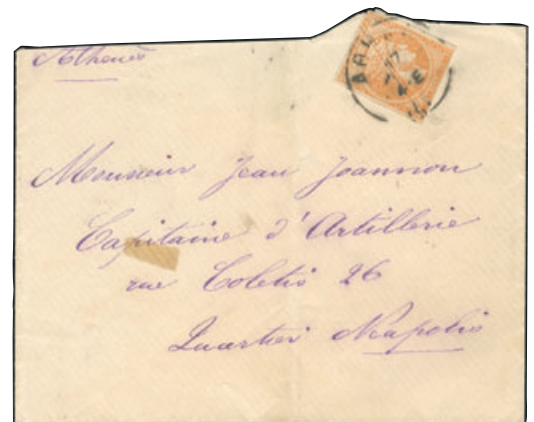 Athènes
Monsieur Jean Joannou
Capitaine d'Artillerie
rue Coletis 26
Quartier Néapolis